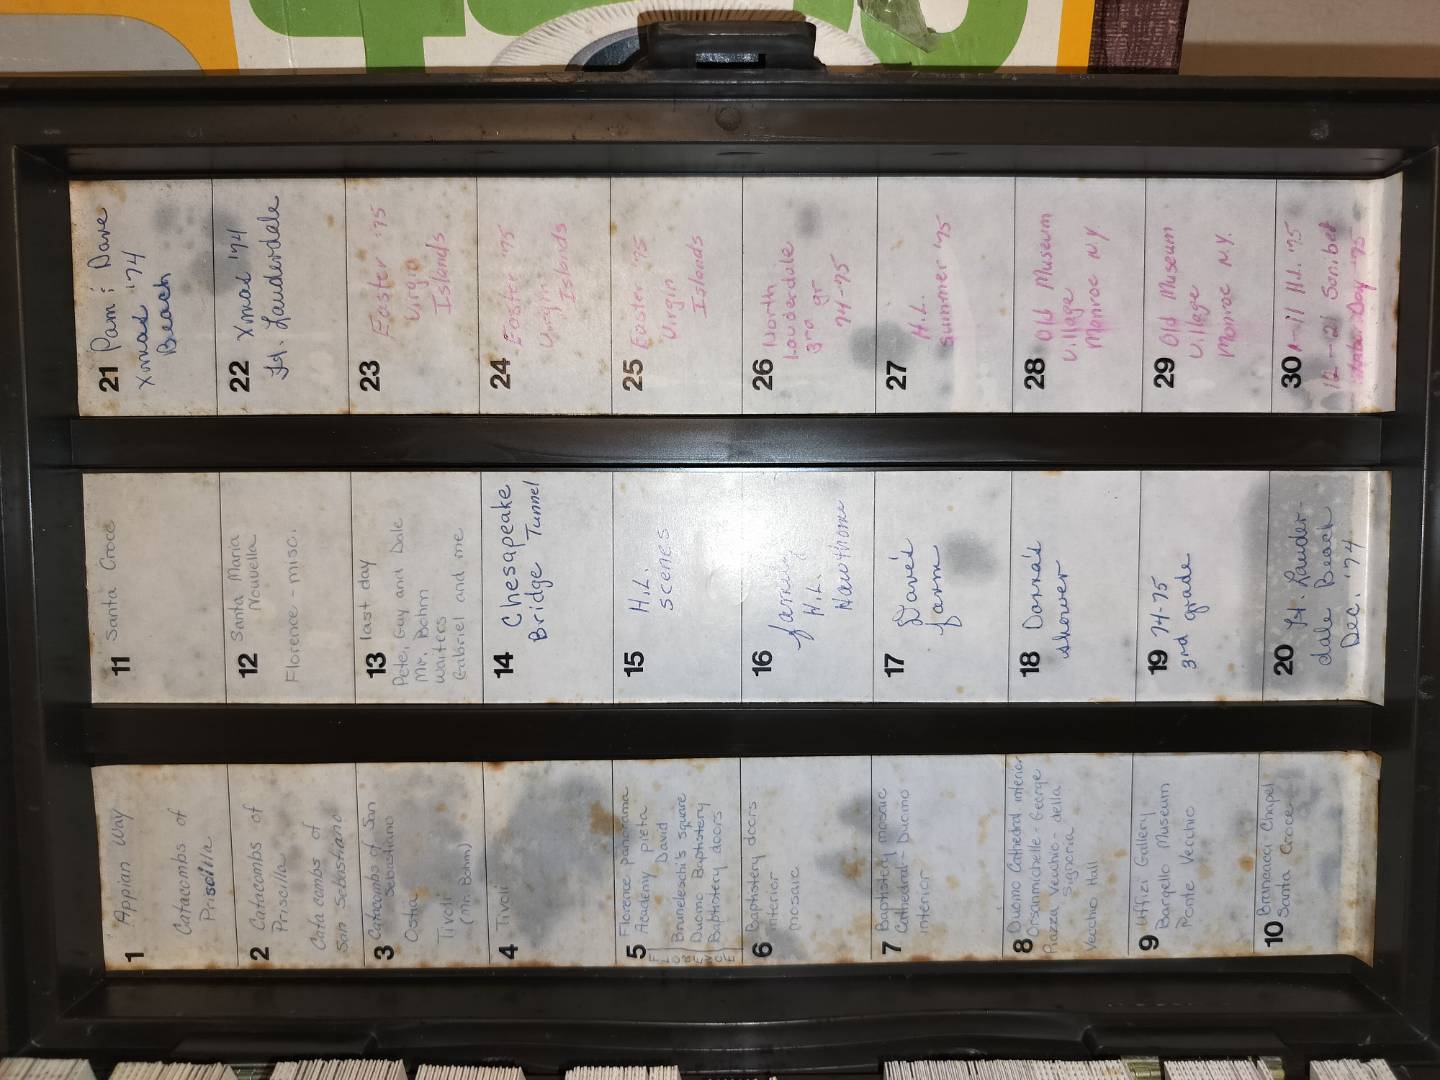 1 Appian Way
Catacombs of
Priscilla
2 Catacombs of
Priscilla
Catacombs of
San Sebastiano
3 Catacombs of San
Sebastiano
Ostia
Tivoli
(Mr. Bohm)
4 Tivoli
5 Florence panorama
Academy pieta
David
Bruneleschi's square
Duomo Baptistery
Baptistery doors
FLORENCE
6 Baptistery doors
interior
mosaic
7 Baptistery mosaic
Cathedral - Duomo
interior
8 Duomo Cathedral interior
Orsanmichelle - George
Piazza Vecchio - della
Signoria
Vecchio Hall
9 Uffizi Gallery
Bargello Museum
Ponte Vecchio
10 Brancacci Chapel
Santa Croce
11 Santa Croce
12 Santa Maria
Nouvella
Florence - misc.
13 last day
Pete, Guy and Dale
Mr. Bohm
waiters
Gabriel and me
14 Chesapeake
Bridge Tunnel
15 H.L.
scenes
16 family
H.L.
Hawthorne
17 Dave's
farm
18 Donna's
shower
19 74-75
3rd grade
20 Ft. Lauder-
dale Beach
Dec. '74
21 Pam & Dave
Xmas '74
Beach
22 Xmas '74
Ft. Lauderdale
23 Easter '75
Virgin
Islands
24 Easter '75
Virgin
Islands
25 Easter '75
Virgin
Islands
26 North
Lauderdale
3rd gr
74-75
27 H.L.
Summer '75
28 Old Museum
Village
Monroe N.Y.
29 Old Museum
Village
Monroe N.Y.
30 1-11 H.L. '75
12-21 Sanibel
Day '75